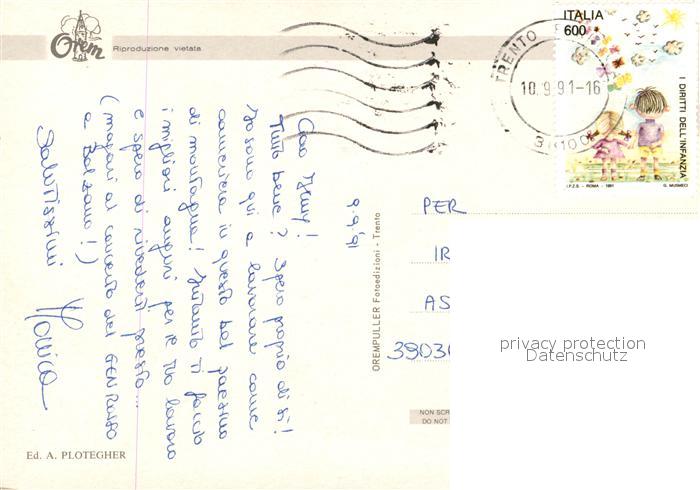 Orem
Riproduzione vietata
ITALIA
600
I DIRITTI DELL'INFANZIA
I.P.Z.S. - ROMA - 1991
G. MUSMEO
TRENTO
10.9.91-16
38100
9.9.'91
Ciao !
Tutto bene? Spero proprio di sì!
Io sono qui a lavorare come
cameriera in questo bel paesino
di montagna! Intanto ti faccio
i migliori auguri per il tuo lavoro
e spero di rivederti presto...
(magari al concerto dei
a Bolzano!)
Salutissimi
Monica
OREMPULLER Fotoedizioni - Trento
PER
IR
AS
3903
privacy protection
Datenschutz
NON SCR
DO NOT
Ed. A. PLOTEGHER